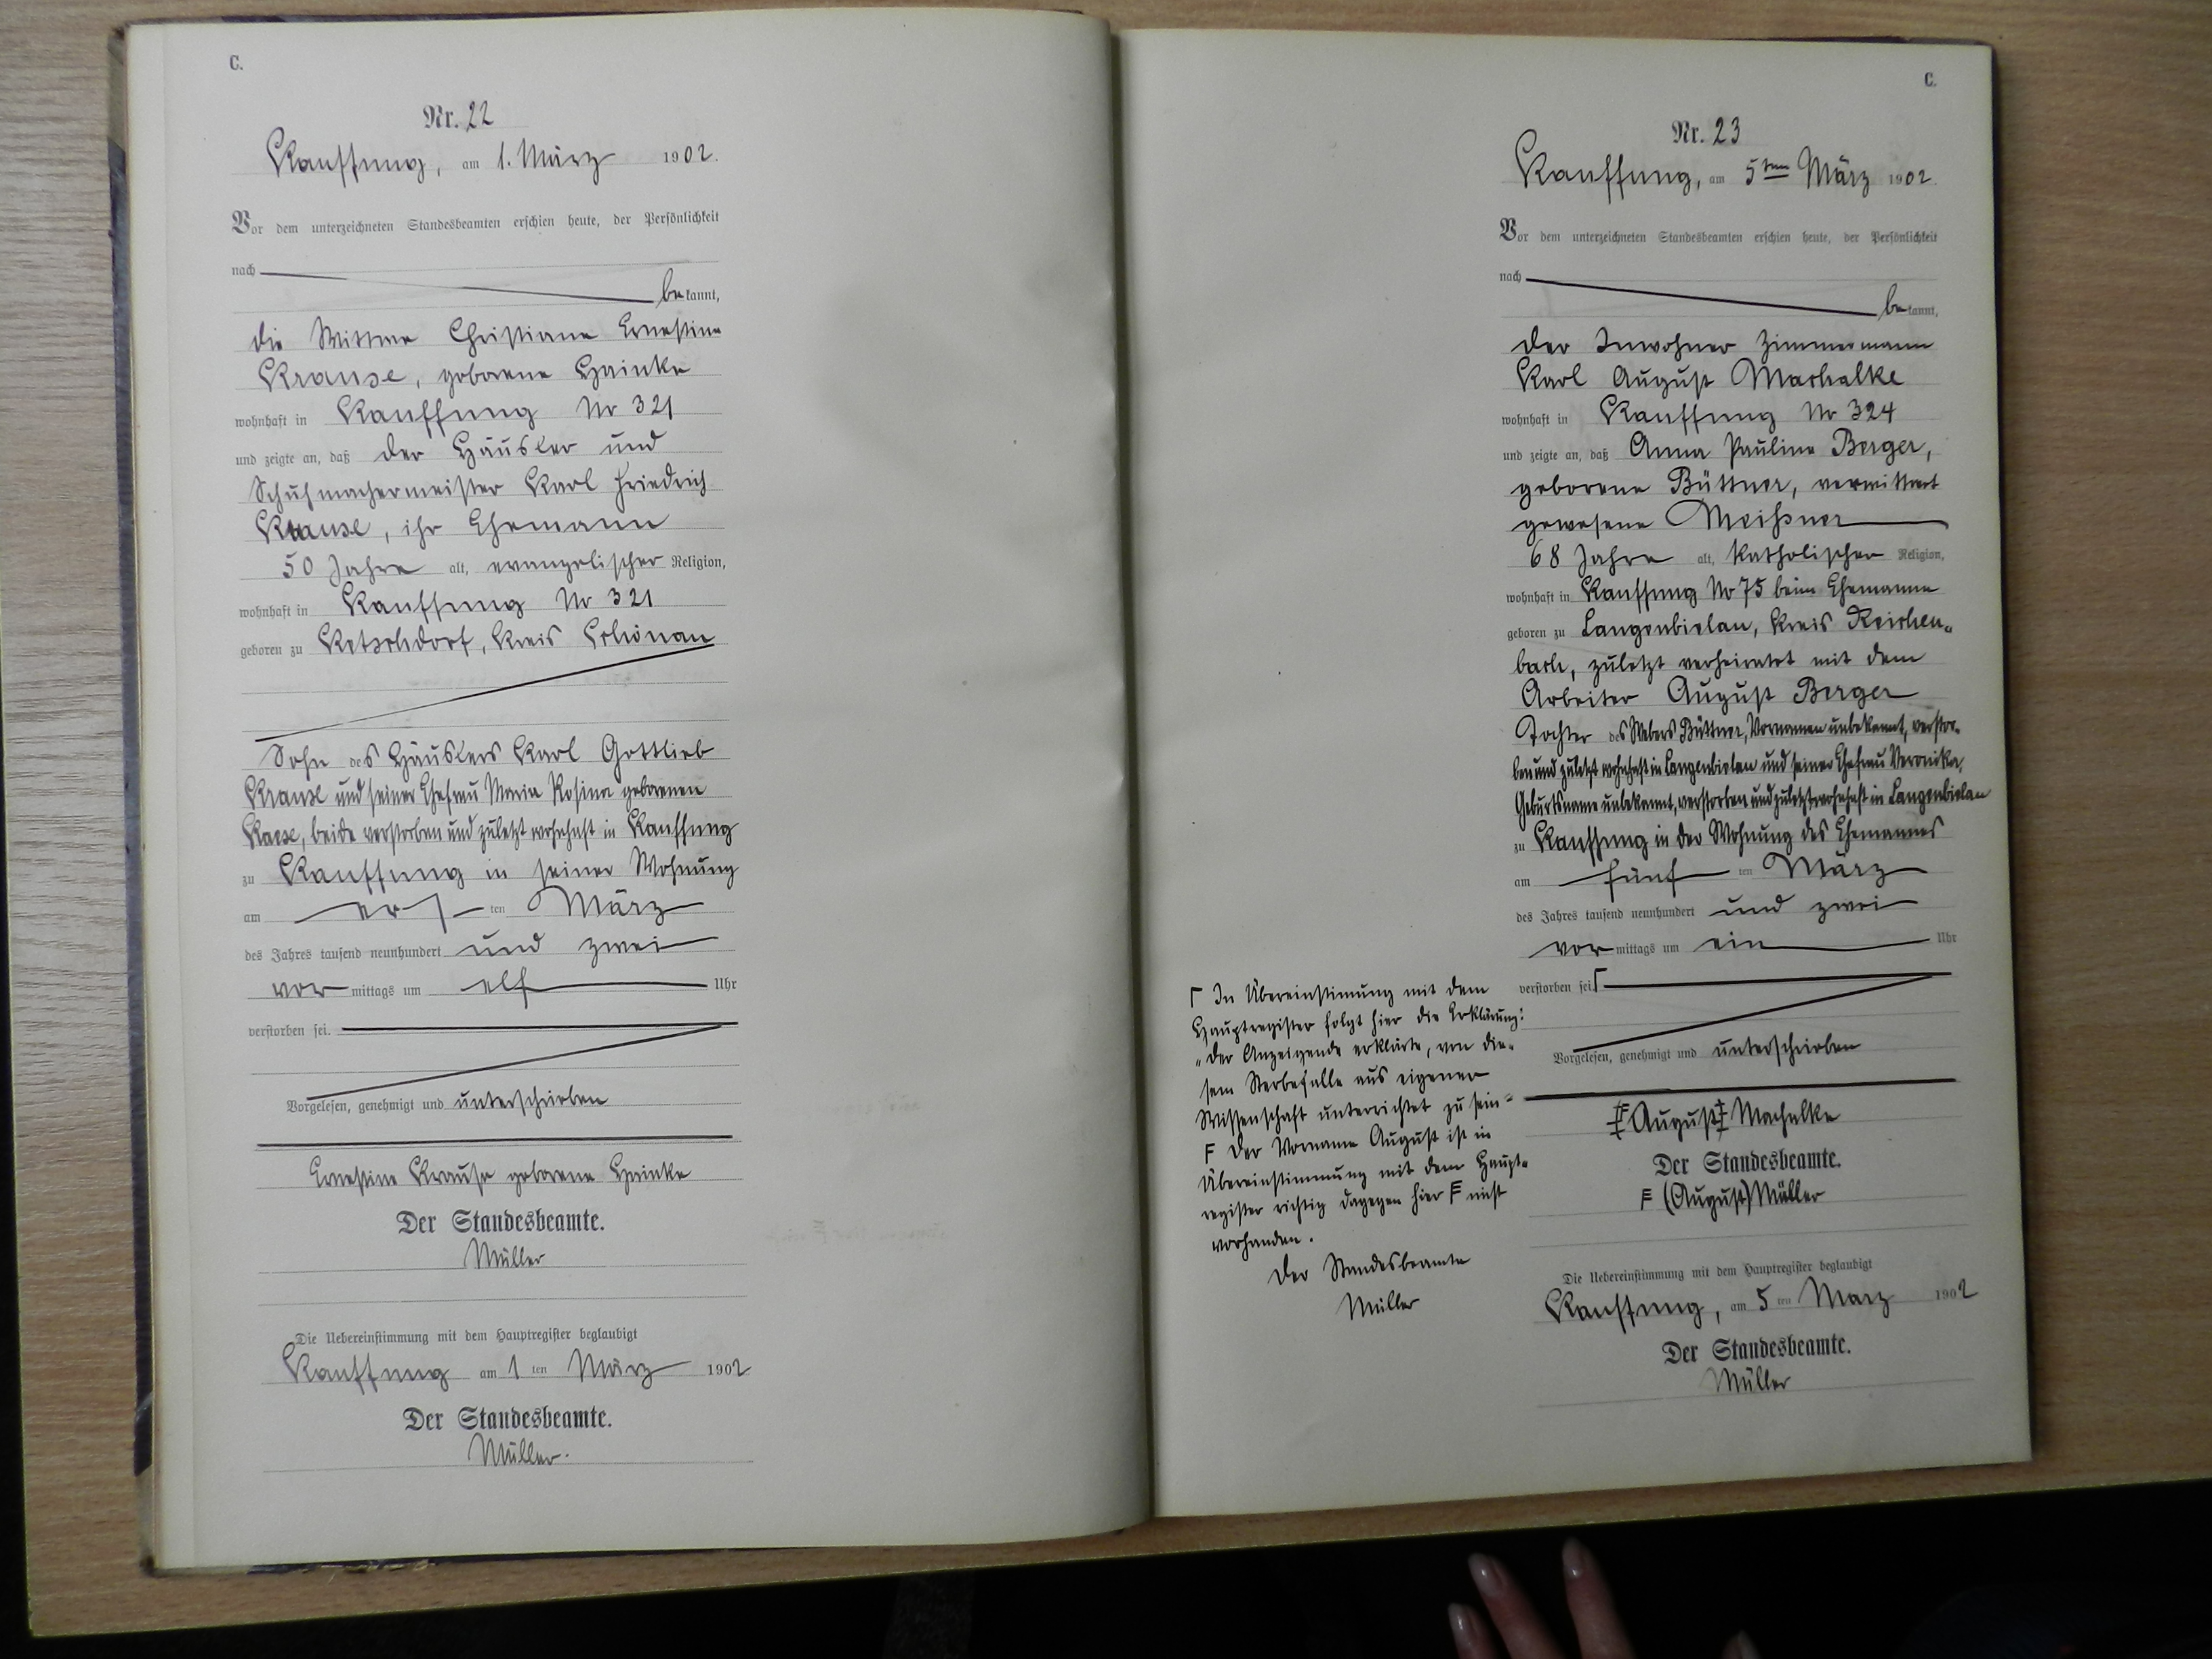 C.
Nr. 22
Kauffung, am 1. März 1902.
Vor dem unterzeichneten Standesbeamten erschien heute, der Persönlichkeit
nach
bekannt,
die Wittwe Christiane Ernestine
Krause, geborene Hainke
wohnhaft in Kauffung No 321
und zeigte an, daß der Häusler und
Schuhmachermeister Karl Friedrich
Krause, ihr Ehemann
50 Jahre alt, evangelischer Religion,
wohnhaft in Kauffung No 321
geboren zu Ketschdorf, Kreis Schönau
Sohn des Häuslers Karl Gottlieb
Krause und seiner Ehefrau Maria Rosina geborenen
beide verstorben und zuletzt wohnhaft in Kauffung
zu Kauffung in seiner Wohnung
am ersten März
des Jahres tausend neunhundert und zwei
vormittags um elf Uhr
verstorben sei.
Vorgelesen, genehmigt und unterschrieben
Ernestine Krause geborene Hainke
Der Standesbeamte.
Müller
Die Uebereinstimmung mit dem Hauptregister beglaubigt
Kauffung am 1 ten März 1902
Der Standesbeamte.
Müller.
C.
Nr. 23
Kauffung, am 5ten März 1902.
Vor dem unterzeichneten Standesbeamten erschien heute, der Persönlichkeit
nach
bekannt,
der Inwohner Zimmermann
Karl August Machalke
wohnhaft in Kauffung No 324
und zeigte an, daß Anna Pauline Berger,
geborene Büttner, verwittwet
gewesene Meißner
68 Jahre alt, katholischer Religion,
wohnhaft in Kauffung No 75 beim Ehemanne
geboren zu Langenbielau, Kreis Reichen-
bach, zuletzt verheiratet mit dem
Arbeiter August Berger
Tochter des Webers Büttner, Vornamen unbekannt, verstor-
ben und zuletzt wohnhaft in Langenbielau und seiner Ehefrau Veronika,
Geburtsname unbekannt, verstorben und zuletzt wohnhaft in Langenbielau
zu Kauffung in der Wohnung des Ehemannes
am fünften März
des Jahres tausend neunhundert und zwei
vormittags um ein Uhr
verstorben sei
Vorgelesen, genehmigt und unterschrieben
August Machalke
Der Standesbeamte.
F (August) Müller
Die Uebereinstimmung mit dem Hauptregister beglaubigt
Kauffung, am 5 ten März 1902
Der Standesbeamte.
Müller
Γ In Übereinstimmung mit dem
Hauptregister folgt hier die Erklärung:
„der Anzeigende erklärte, von die-
sem Sterbefalle aus eigener
Wissenschaft unterrichtet zu sein"
F Der Vorname August ist in
Übereinstimmung mit dem Haupt-
register richtig dagegen hier F nicht
vorhanden.
Der Standesbeamte
Müller